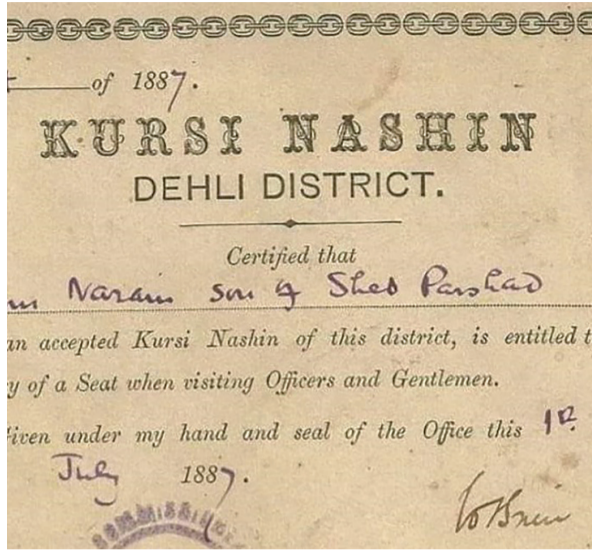 of 1887.
KURSI NASHIN
DEHLI DISTRICT.
Certified that
Narain son of Sheo Parshad
an accepted Kursi Nashin of this district, is entitled t
y of a Seat when visiting Officers and Gentlemen.
Given under my hand and seal of the Office this 1st
July 1887.